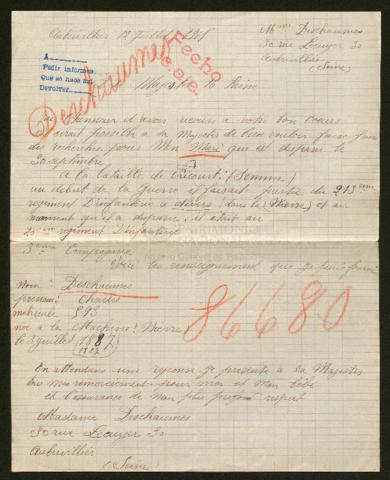 Aubervillier 12 Juillet 1918
Mme Deschaumes
30 rue Lecuyer 30
Aubervilliers
(Seine)
A
Pedir informes.
Que se hace así
Devolver
Deschaumes
Fecho
Majesté la Reine
honneur d'avoir recours a votre bon coeur
serait possible a sa Majesté de bien vouloir faire faire
des recherches pour Mon Mari qui est disparu le
30 septembre
a la bataille de (Somme)
au debut de la Guerre et faisait partie du 213eme
regiment D'infanterie a (dans la Nievre) et au
moment qu'il a disparu, il était au
regiment D'infanterie
3eme Compagnie
les renseignement que je peus fournir
Nom: Deschaumes
prenom: Charles
matricule 893
né a la Machine: Nievre
le 3 Juillet 1887
86680
En attendant une reponse je presente a la Majestée
mes remerciement pour moi et mon bébé
et l'assurance de mon plus profond respect
Madame Deschaumes
30 rue Lecuyer 30
Aubervillier
(Seine)